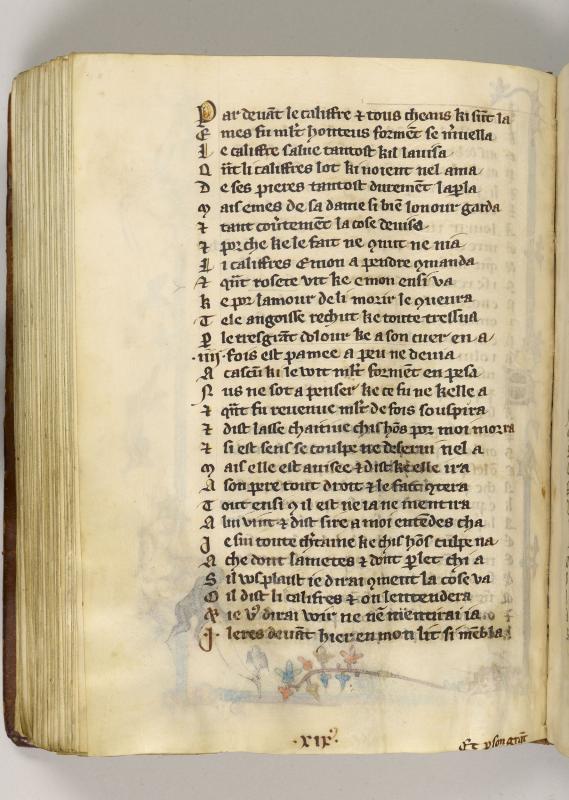 Par deuāt le califfre ⁊ tous cheaus ki sūt la
Emes fu ml't honteus formēt se m'uella
Le califfre salue tantost kil lauisa
Q̄nt li califfres lot ki noient nel ama
De ses pieres tantost durement lap̄la
Mais emes de sa dame si biē lonour garda
⁊ tant couūtemēt la cose deuisa
⁊ por che ke le fait ne 9nut ne nia
Li califfres Emon a pendre 9manda
⁊ q̄nt rosete vit ke emon ensi va
ke por lamour de li morir le 9uenra
Tele angoisse rechut ke toute tressua
P le tresgrāt dolour ke a son cuer en a
·iiij· fois est pamee a peu ne deuia
A cascū ki le voit ml't formēt en pesa
Nus ne sot a penser ke ce fu ne kelle a
⁊ q̄nt fu reuenue ml't de fois souspira
⁊ dist lasse chaitiue chis hōs por moi morra
⁊ si est sens se coulpe ne deserui nel a
Mais elle est auisee ⁊ dist ke elle ira
A son pere tout droit ⁊ le fait 9tera
Tout ensi 9 il est ne ia ne mentira
A lui vint ⁊ dist sire a moi entēdes cha
Je sui toute ch'taine ke chis hōs culpe na
A che dont lametes ⁊ dōt p̄let chi a
Sil v9 plaist ie dirai 9ment la cose va
Oil dist li califres ⁊ on lentendera
⁊ ie v9 dirai voir ne nē mētirai ia
J· leres deuāt hier en mon lit si mēbla
·xix9·
Et p son grāt